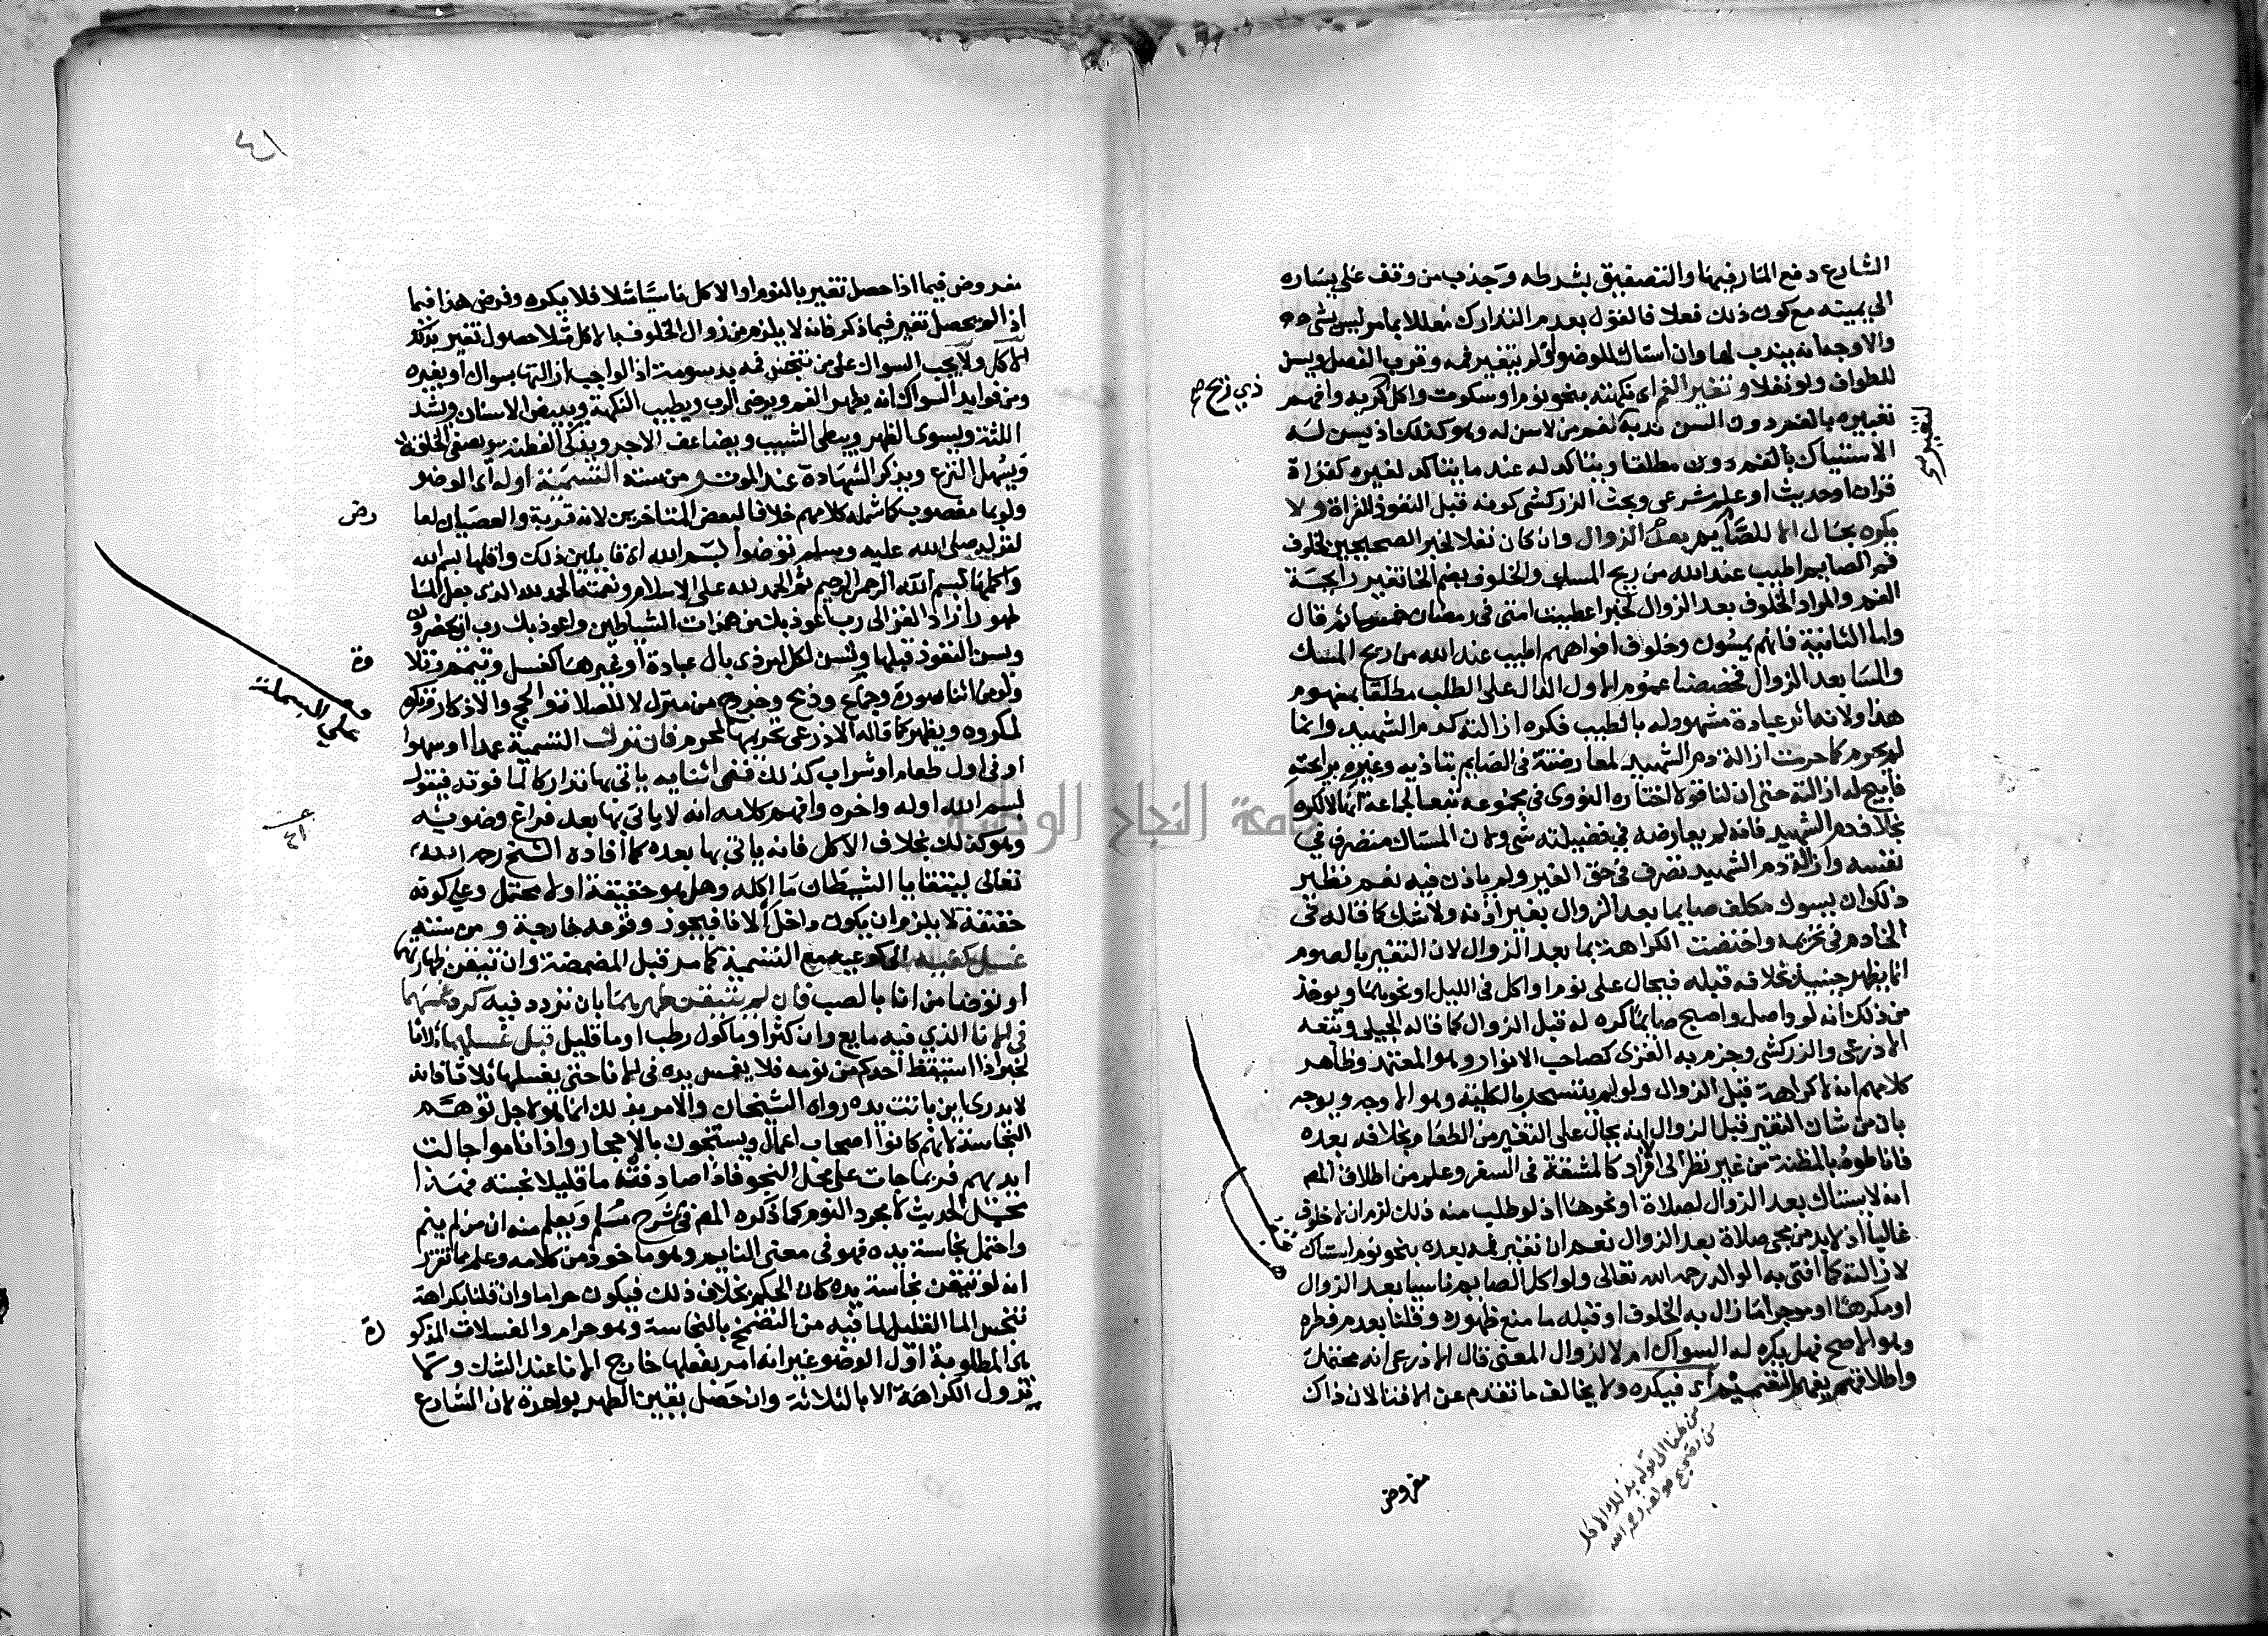 الشارع دفع المار فيها والتصفيق بشرطه وجذب من وقف على يساره
الى يمينه مع كون ذلك فعلا فالقول بعدم التدارك معللا بما مر ليس بشيء
والاوجه انه يندب لها وان استاك للوضوء ولم يتغير فمه وقرب الفصل ويسن
للطواف ولو نفلا و تغير الفم اى نكهته بنحو نوم او سكوت واكل كريه وافهم
ذي ريح صح
تعبيره بالفم دون السن ندبه لفم من لا سن له وهو كذلك اذ يسن له
لتغير
الاستياك بالفم دون مطلقا ويتاكد له عند ما يتاكد لغيره كقراة
قران او حديث او علم شرعى وبحث الزركشى كونه قبل التعوذ للقراة ولا
يكره بحال الا للصايم بعد الزوال وان كان نفلا لخبر الصحيحين لخلوف
فم الصايم اطيب عند الله من ريح المسك والخلوف بضم الخا تغير رايحة
الفم والمراد الخلوف بعد الزوال لخبر اعطيت امتى فى رمضان خمسا ثم قال
واما الثانية فانهم يمسون وخلوف افواههم اطيب عند الله من ريح المسك
والمسا بعد الزوال فخصصنا عموم الاول الدال على الطلب مطلقا بمفهوم
هذا ولانه اثر عبادة مشهود له بالطيب فكره ازالته كدم الشهيد وانما
لم يحرم كما حرمت ازالة دم الشهيد لمعارضته فى الصايم بتاذيه وغيره برايحته
فابيح له ازالته حتى ان لنا قولا اختاره النووى فى مجموعه تبعا لجماعة انها لا تكره
بخلاف دم الشهيد فانه لم يعارضه فى فضيلته شى ولان المستاك متصرف فى
نفسه وازالة دم الشهيد تصرف فى حق الغير ولم ياذن فيه نعم نظير
ذلك ان يسوك مكلف صايما بعد الزوال بغير اذنه ولا شك كما قاله فى
الخادم فى تحريمه واختصت الكراهة بما بعد الزوال لان التغير بالصوم
انما يظهر حينيذ بخلافه قبله فيحال على نوم او اكل فى الليل او نحوهما ويوخذ
من ذلك انه لو واصل واصبح صايما كره له قبل الزوال كما قاله الجيلى وتبعه
الاذرعى والزركشى وجزم به الغزى كصاحب الانوار وهو المعتمد وظاهر
كلامهم انه لا كراهة قبل الزوال ولو لم يتسحر بالكلية وهو الاوجه ويوجه
بان من شان التغير قبل الزوال انه يحال على التغير من الطعام بخلافه بعده
فاناطوه بالمظنة من غير نظر الى الافراد كالمشقة فى السفر وعلم من اطلاق المص
انه لا يستاك بعد الزوال لصلاة او نحوها اذ لو طلب منه ذلك لزم ان لا خلوف
غالبا اذ لا بد من مجى صلاة بعد الزوال نعم ان تغير فمه بعده بنحو نوم استاك
لازالته كما افتى به الوالد رحمه الله تعالى ولو اكل الصايم ناسيا بعد الزوال
او مكرها او موجرا ما زال به الخلوف او قبله ما منع ظهوره وقلنا بعدم فطره
وهو الاصح فهل يكره له السواك ام لا لزوال المعنى قال الاذرعى انه محتمل
واطلاقهم يفهم التعميم اى فيكره ولا يخالف ما تقدم عن الافتا لان ذاك
من هنا الى قوله بذلك الاكل
رحمه الله
مفروض
٤١
مفروض فيما اذا حصل تغير بالنوم او الاكل ناسيا مثلا فلا يكره وفرض هذا فيما
اذا لم يحصل تغير فيما ذكر فانه لا يلزم من زوال الخلوف بالاكل مثلا حصول تغير بذلك
الاكل ولا يجب السواك على من تنجس فمه بدسومة اذ الواجب ازالتها بسواك او بغيره
ومن فوايد السواك انه يطهر الفم ويرضى الرب ويطيب النكهة ويبيض الاسنان ويشد
اللثة ويسوى الظهر ويبطى الشيب ويضاعف الاجر ويذكى الفطنه ويصفى الخلقة
ويسهل النزع ويذكر الشهادة عند الموت و من سنته التسمية اوله اى الوضو
ولو بما مغصوب كما شمله كلامهم خلافا لبعض المتاخرين لانه قربة والعصيان لعا
رض
لقوله صلى الله عليه وسلم توضوا بسم الله اى قايلين ذلك واقلها بسم الله
واكملها بسم الله الرحمن الرحيم ثم الحمد لله على الاسلام ونعمته الحمد لله الذى جعل الما
طهورا زاد الغزالى رب اعوذ بك من همزات الشياطين واعوذ بك رب ان يحضرون
ويسن التعوذ قبلها وتسن لكل امر ذى بال عبادة او غيرها كغسل وتيمم وتلا
وة
ولو من اثنا سورة وجماع وذبح وخروج من منزل لا للصلاة والحج والاذكار وتكره
لمكروه ويظهر كما قاله الاذرعى تحريمها لمحرم فان ترك التسمية عمدا او سهوا
على البسملة
او فى اول طعام او شراب كذلك ففى اثنايه ياتى بها تداركا لما فوته فيقول
بسم الله اوله واخره وافهم كلامه انه لا ياتى بها بعد فراغ وضويه
وهو كذلك بخلاف الاكل فانه ياتى بها بعده كما افاده الشيخ رحمه الله
تعالى ليتقايا الشيطان ما اكله وهل هو حقيقة او لا محتمل وعلى كونه
حقيقة لا يلزم ان يكون داخل الانا فيجوز وقوعه خارجه و من سننه
غسل كفيه الى كوعيه مع التسمية كما مر قبل المضمضة وان تيقن طهارتهما
او توضا من انا بالصب فان لم يتيقن طهرهما بان تردد فيه كره غمسهما
فى الانا الذي فيه مايع وان كثر او ماكول رطب او ما قليل قبل غسلهما ثلاثا
لخبر اذا استيقظ احدكم من نومه فلا يغمس يده فى الانا حتى يغسلها ثلاثا فانه
لا يدرى اين باتت يده رواه الشيخان والامر بذلك انما هو لاجل توهم
النجاسة لانهم كانوا اصحاب اعمال ويستنجون بالاحجار واذا ناموا جالت
ايديهم فربما جات على محل النجو فاذا صادفت ما قليلا نجسته فهذا
محمل الحديث لا مجرد النوم كما ذكره المص فى شرح مسلم ويعلم منه ان من لم ينم
واحتمل نجاسة يده فهو فى معنى النايم وهو ماخوذ من كلامه وعلم بما تقرر
انه لو تيقن نجاسة يده كان الحكم بخلاف ذلك فيكون حراما وان قلنا بكراهة
تنجس الما القليل لما فيه من التضمخ بالنجاسة وهو حرام والغسلات المذكو
رة
هى المطلوبة اول الوضو غير انه امر بفعلها خارج الانا عند الشك ولما
تزول الكراهة الا بالثلاثة وان حصل بتيقن الطهر بواحدة لان الشارع